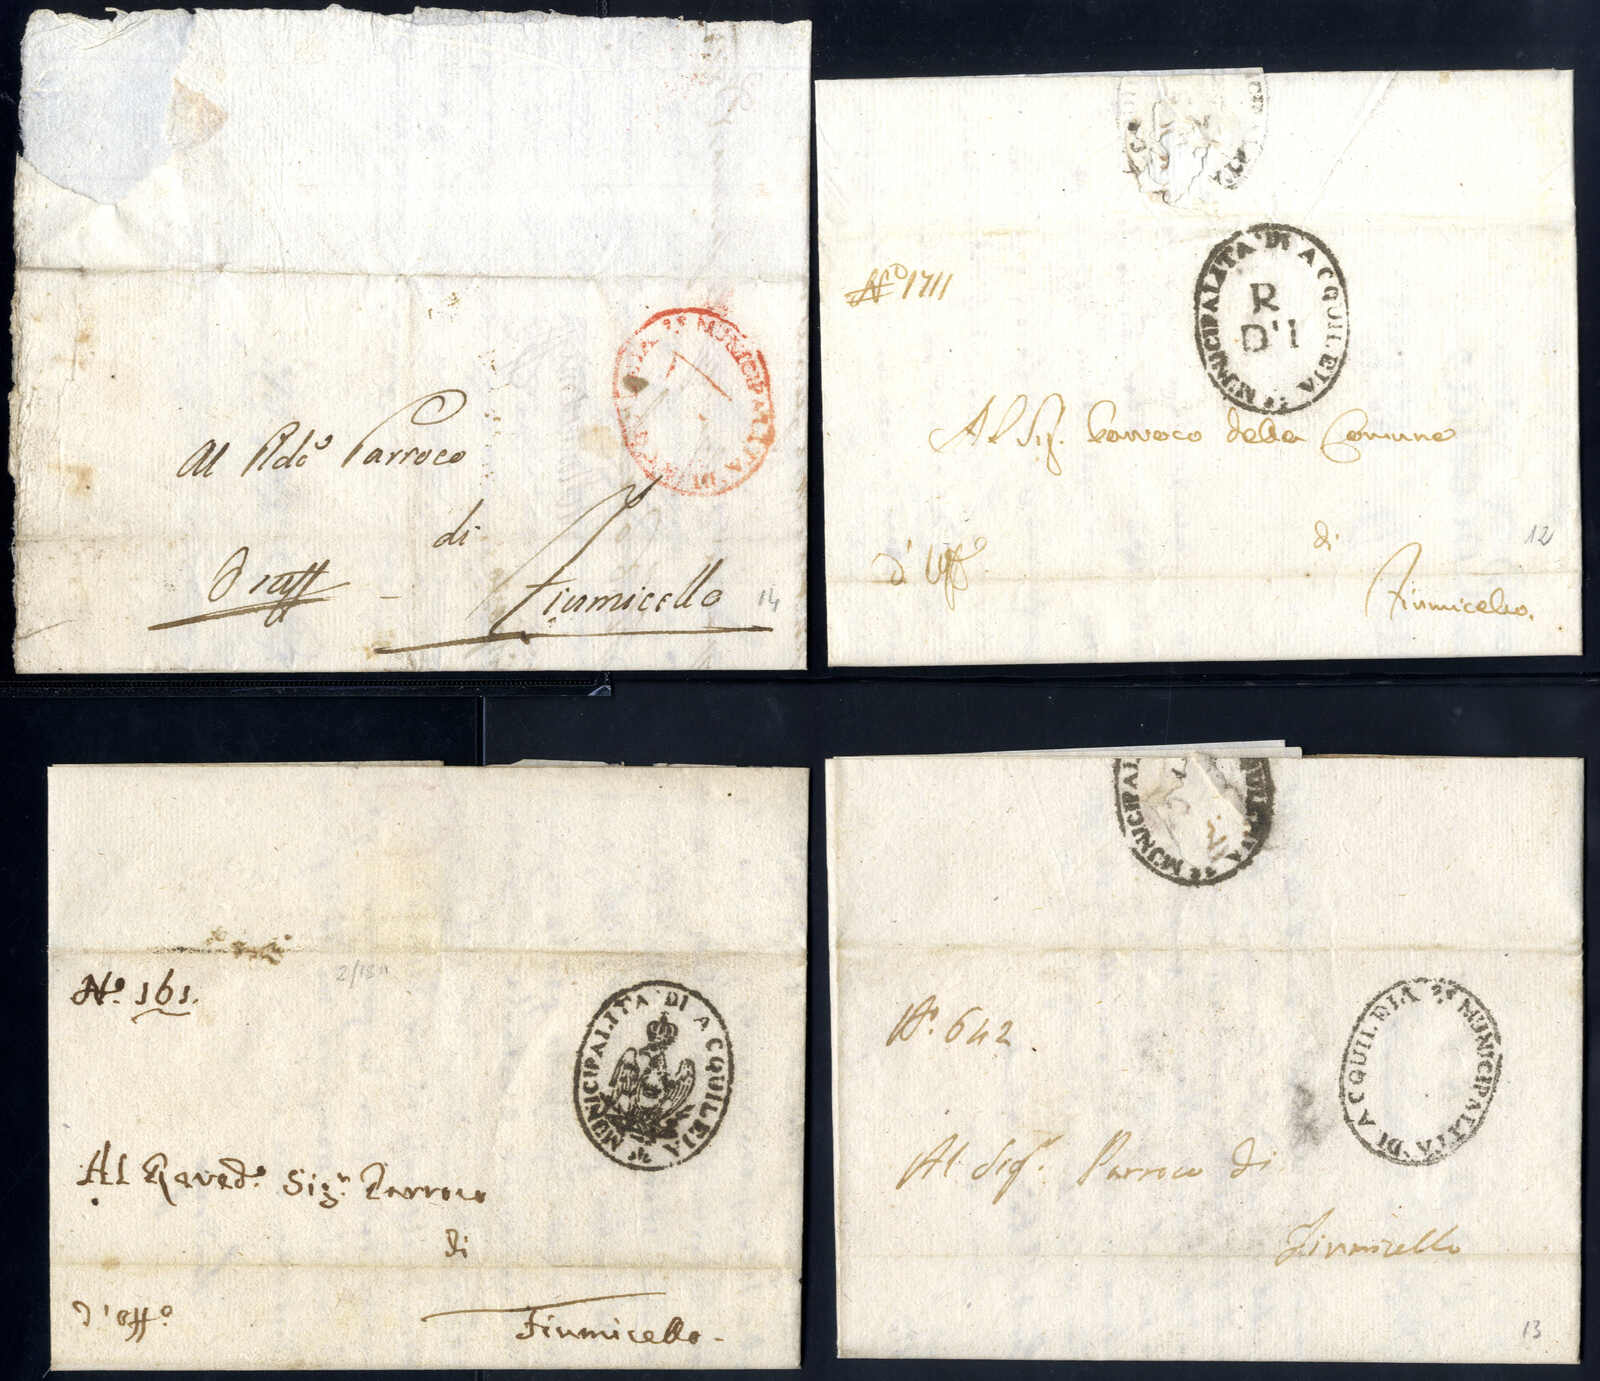 MUNICIPALITA' DI
Al Rdo. Parroco
di
Fiumicello
14
MUNICIPALITA' DI ACQUILEJA
R
D'I
No 1711
Al Sig. Parroco della Comune
di
12
d'Uffo
Fiumicello.
No. 161.
2/1811
MUNICIPALITA' DI ACQUILEJA
Al Revedo. Sigr. Parroco
di
d'offo.
Fiumicello.
MUNICIPAL
No. 642.
MUNICIPALITA' DI ACQUILEJA
Al Sigr. Parroco di
Fiumicello
13